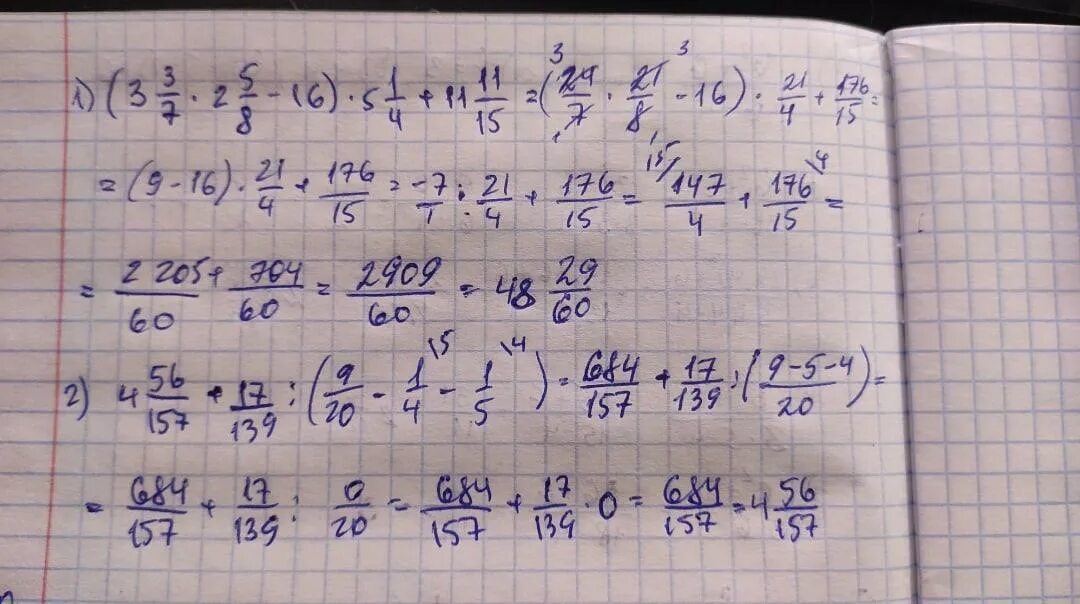 1) (3 3/7 · 2 5/8 - 16) · 5 1/4 + 11 11/15 = (24/7 · 21/8 - 16) · 21/4 + 176/15 =
= (9 - 16) · 21/4 + 176/15 = -7/1 : 21/4 + 176/15 = 15/ 147/4 + 176/15 \4 =
= 2205/60 + 704/60 = 2909/60 = 48 29/60
2) 4 56/157 + 17/139 : (9/20 - 1/4 \5 - 1/5 \4) = 684/157 + 17/139 : (9-5-4/20) =
= 684/157 + 17/139 : 0/20 = 684/157 + 17/139 · 0 = 684/157 = 4 56/157